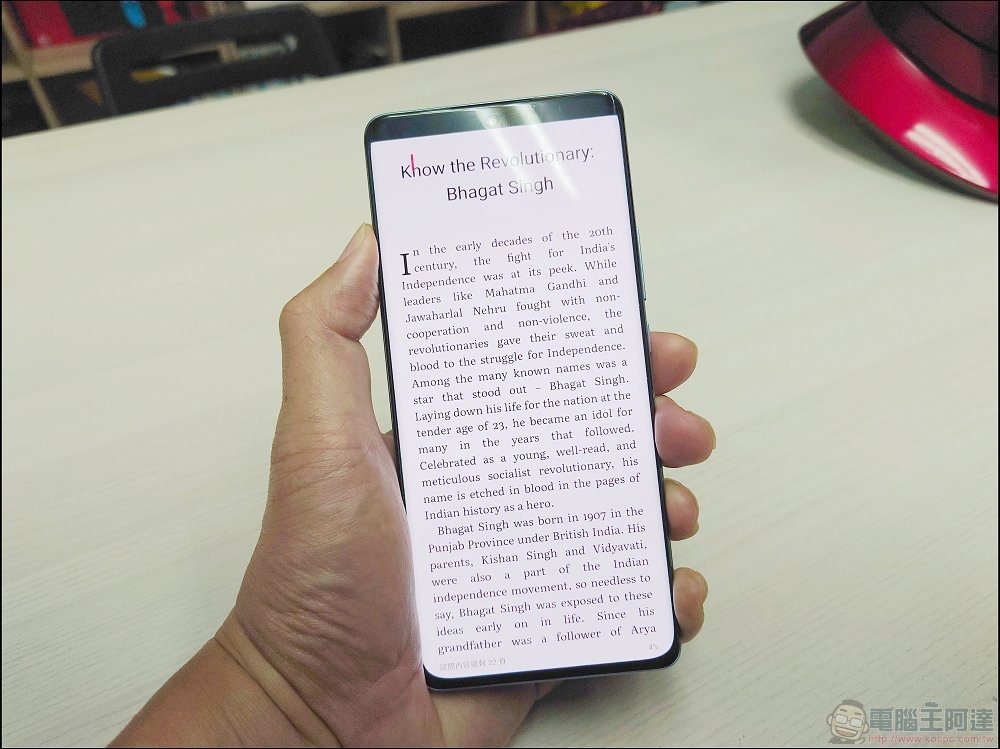 Know the Revolutionary:
Bhagat Singh
In the early decades of the 20th
century, the fight for India's
Independence was at its peek. While
leaders like Mahatma Gandhi and
Jawaharlal Nehru fought with non-
cooperation and non-violence, the
revolutionaries gave their sweat and
blood to the struggle for Independence.
Among the many known names was a
star that stood out – Bhagat Singh.
Laying down his life for the nation at the
tender age of 23, he became an idol for
many in the years that followed.
Celebrated as a young, well-read, and
meticulous socialist revolutionary, his
name is etched in blood in the pages of
Indian history as a hero.
Bhagat Singh was born in 1907 in the
Punjab Province under British India. His
parents, Kishan Singh and Vidyavati,
were also a part of the Indian
independence movement, so needless to
say, Bhagat Singh was exposed to these
ideas early on in life. Since his
grandfather was a follower of Arya
試閱內容還剩 22 頁 4%
電腦王阿達
http://www.kocpc.com.tw